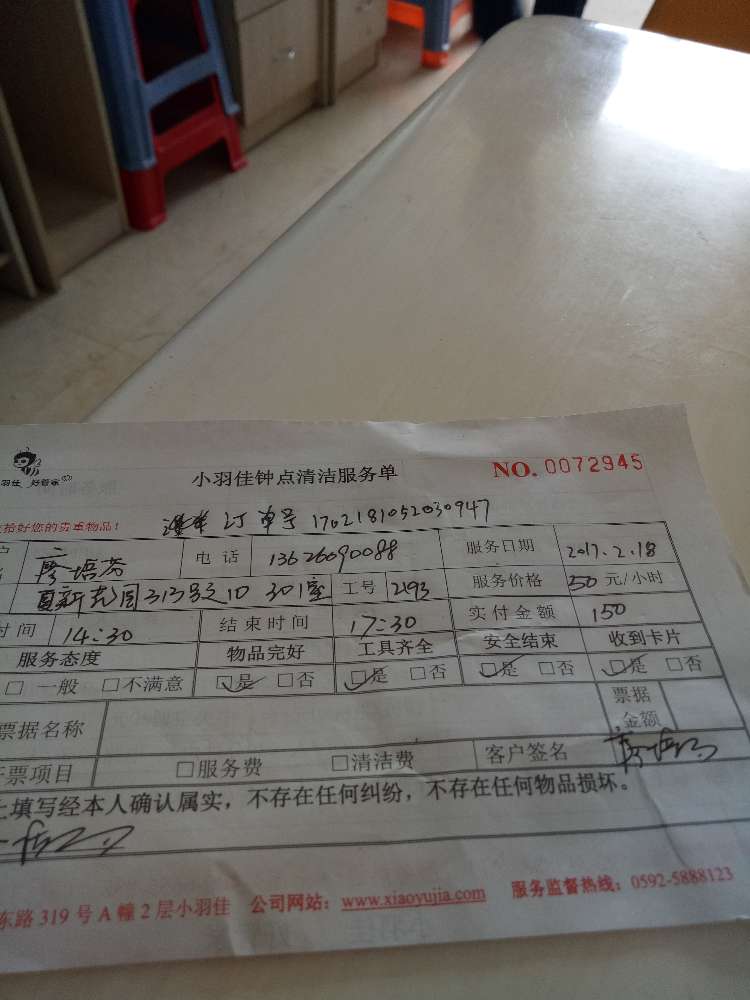 羽佳 好管家
小羽佳钟点清洁服务单
NO. 0072945
拾好您的贵重物品!
订单号 1702181052030947
廖培芬 电话 13626090088 服务日期 2017.2.18
313号之10 301室 工号 2193 服务价格 50 元/小时
时间 14:30 结束时间 17:30 实付金额 150
服务态度 物品完好 工具齐全 安全结束 收到卡片
□ 一般 □不满意 ☑是 □否 ☑是 □否 ☑是 □否 ☑是 □否
票据名称 票据金额
票项目 □服务费 □清洁费 客户签名
上填写经本人确认属实,不存在任何纠纷,不存在任何物品损坏。
东路 319 号 A 幢 2 层小羽佳 公司网站: www.xiaoyujia.com 服务监督热线: 0592-5888123